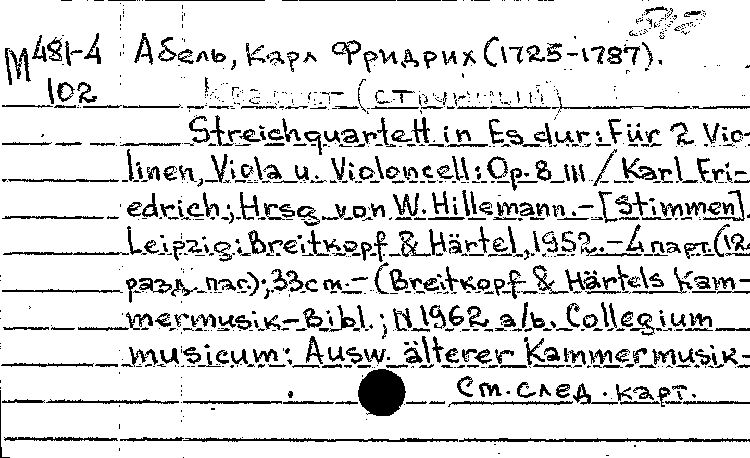 М 481-4 Абель, Карл Фридрих (1725-1787).
102 Квартет (струнный)
Streichquartett in Es dur: Für 2 Vio-
linen, Viola u. Violoncell: Op. 8 III / Karl Fri-
edrich; Hrsg. von W. Hillemann. - [Stimmen].
Leipzig: Breitkopf & Härtel, 1952. - 4 парт. (12
разд. паг.); 33 см. - (Breitkopf & Härtels Kam-
mermusik-Bibl.; N 1962 a/b. Collegium
musicum: Ausw. älterer Kammermusik-
См. след. карт.